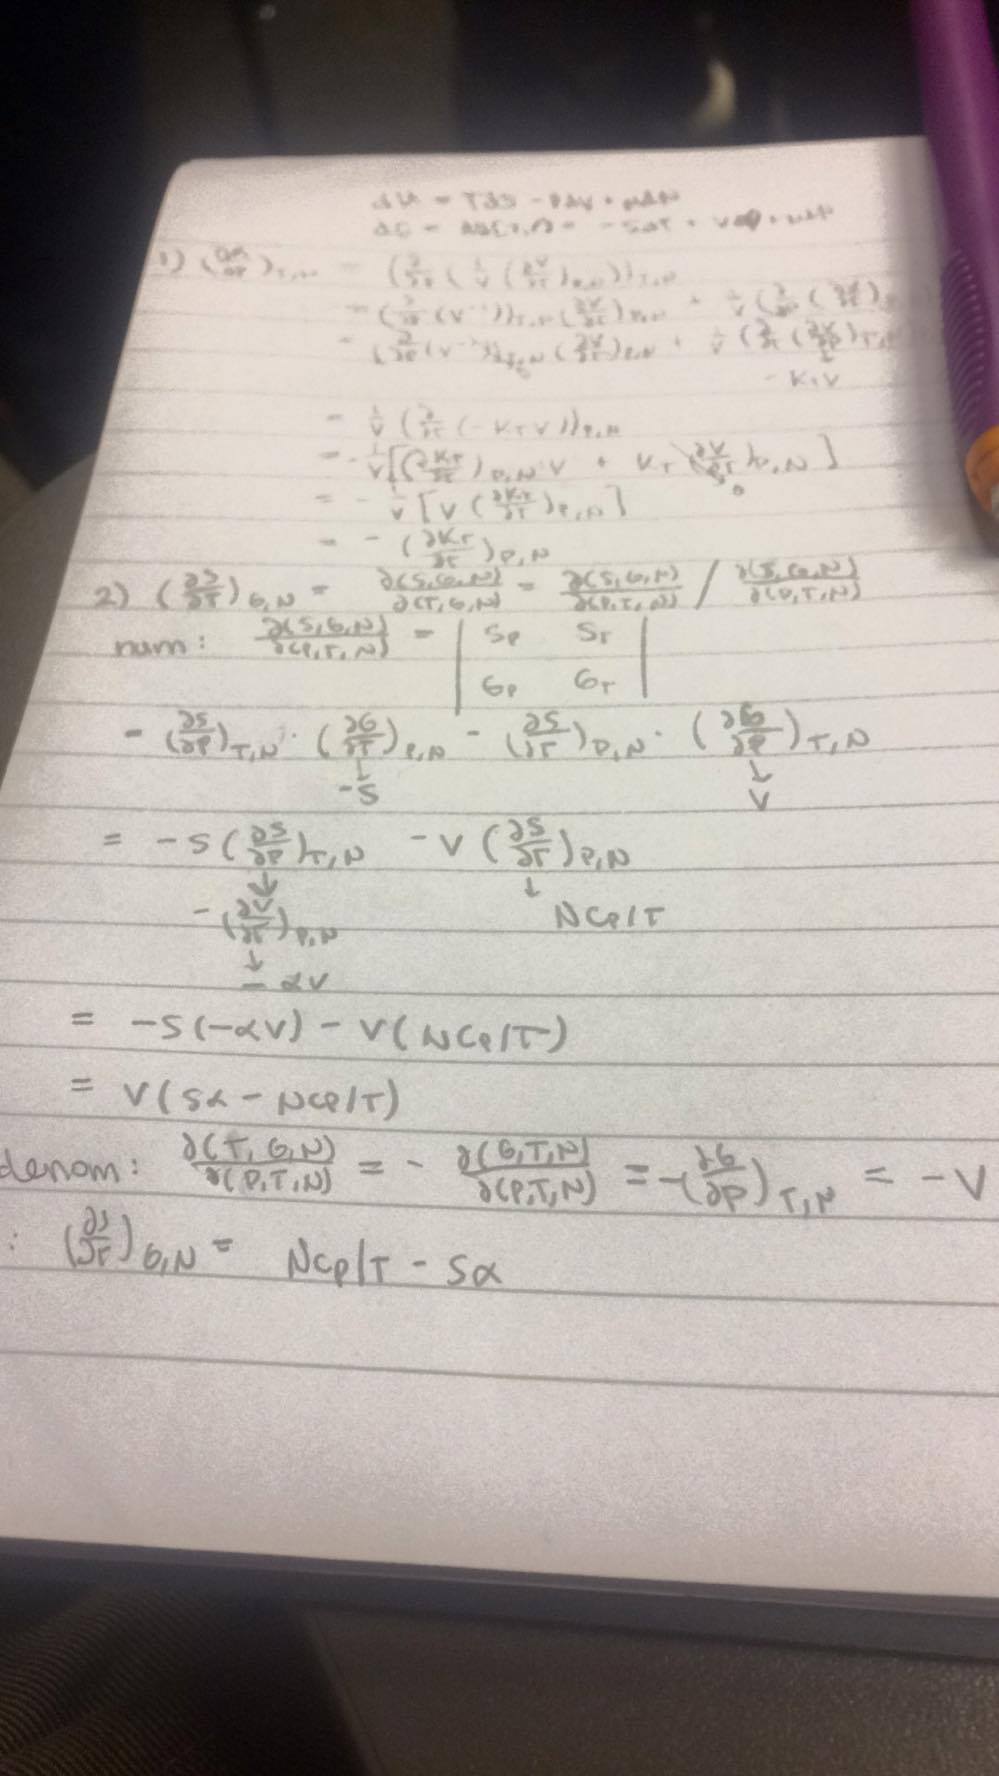 dU = TdS - PdV + μdN
1) (∂α/∂P)_T,N = (∂/∂P (1/V (∂V/∂T)_P,N))_T,N
= (∂/∂P (V⁻¹))_T,N (∂V/∂T)_P,N + 1/V (∂/∂P (∂V/∂T)
= (∂/∂P (V⁻¹))_T,N (∂V/∂T)_P,N + 1/V (∂/∂T (∂V/∂P)_T,N
↓ 0 ↓
- K_T V
= 1/V (∂/∂T (-K_T V))_P,N
= - 1/V [(∂K_T/∂T)_P,N V + K_T (∂V/∂T)_P,N]
↓ 0
= - 1/V [V (∂K_T/∂T)_P,N]
= - (∂K_T/∂T)_P,N
2) (∂S/∂T)_G,N = ∂(S,G,N)/∂(T,G,N) = ∂(S,G,N)/∂(P,T,N) / ∂(T,G,N)/∂(P,T,N)
num: ∂(S,G,N)/∂(P,T,N) = | S_P S_T |
| G_P G_T |
= (∂S/∂P)_T,N · (∂G/∂T)_P,N - (∂S/∂T)_P,N · (∂G/∂P)_T,N
↓ ↓
-S V
= -S (∂S/∂P)_T,N - V (∂S/∂T)_P,N
↓ ↓
-(∂V/∂T)_P,N NCp/T
↓
- αV
= -S(-αV) - V(NCp/T)
= V(Sα - NCp/T)
denom: ∂(T,G,N)/∂(P,T,N) = - ∂(G,T,N)/∂(P,T,N) = -(∂G/∂P)_T,N = -V
: (∂S/∂T)_G,N = NCp/T - Sα